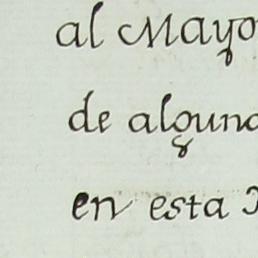 al Mayo
de alguna
en esta